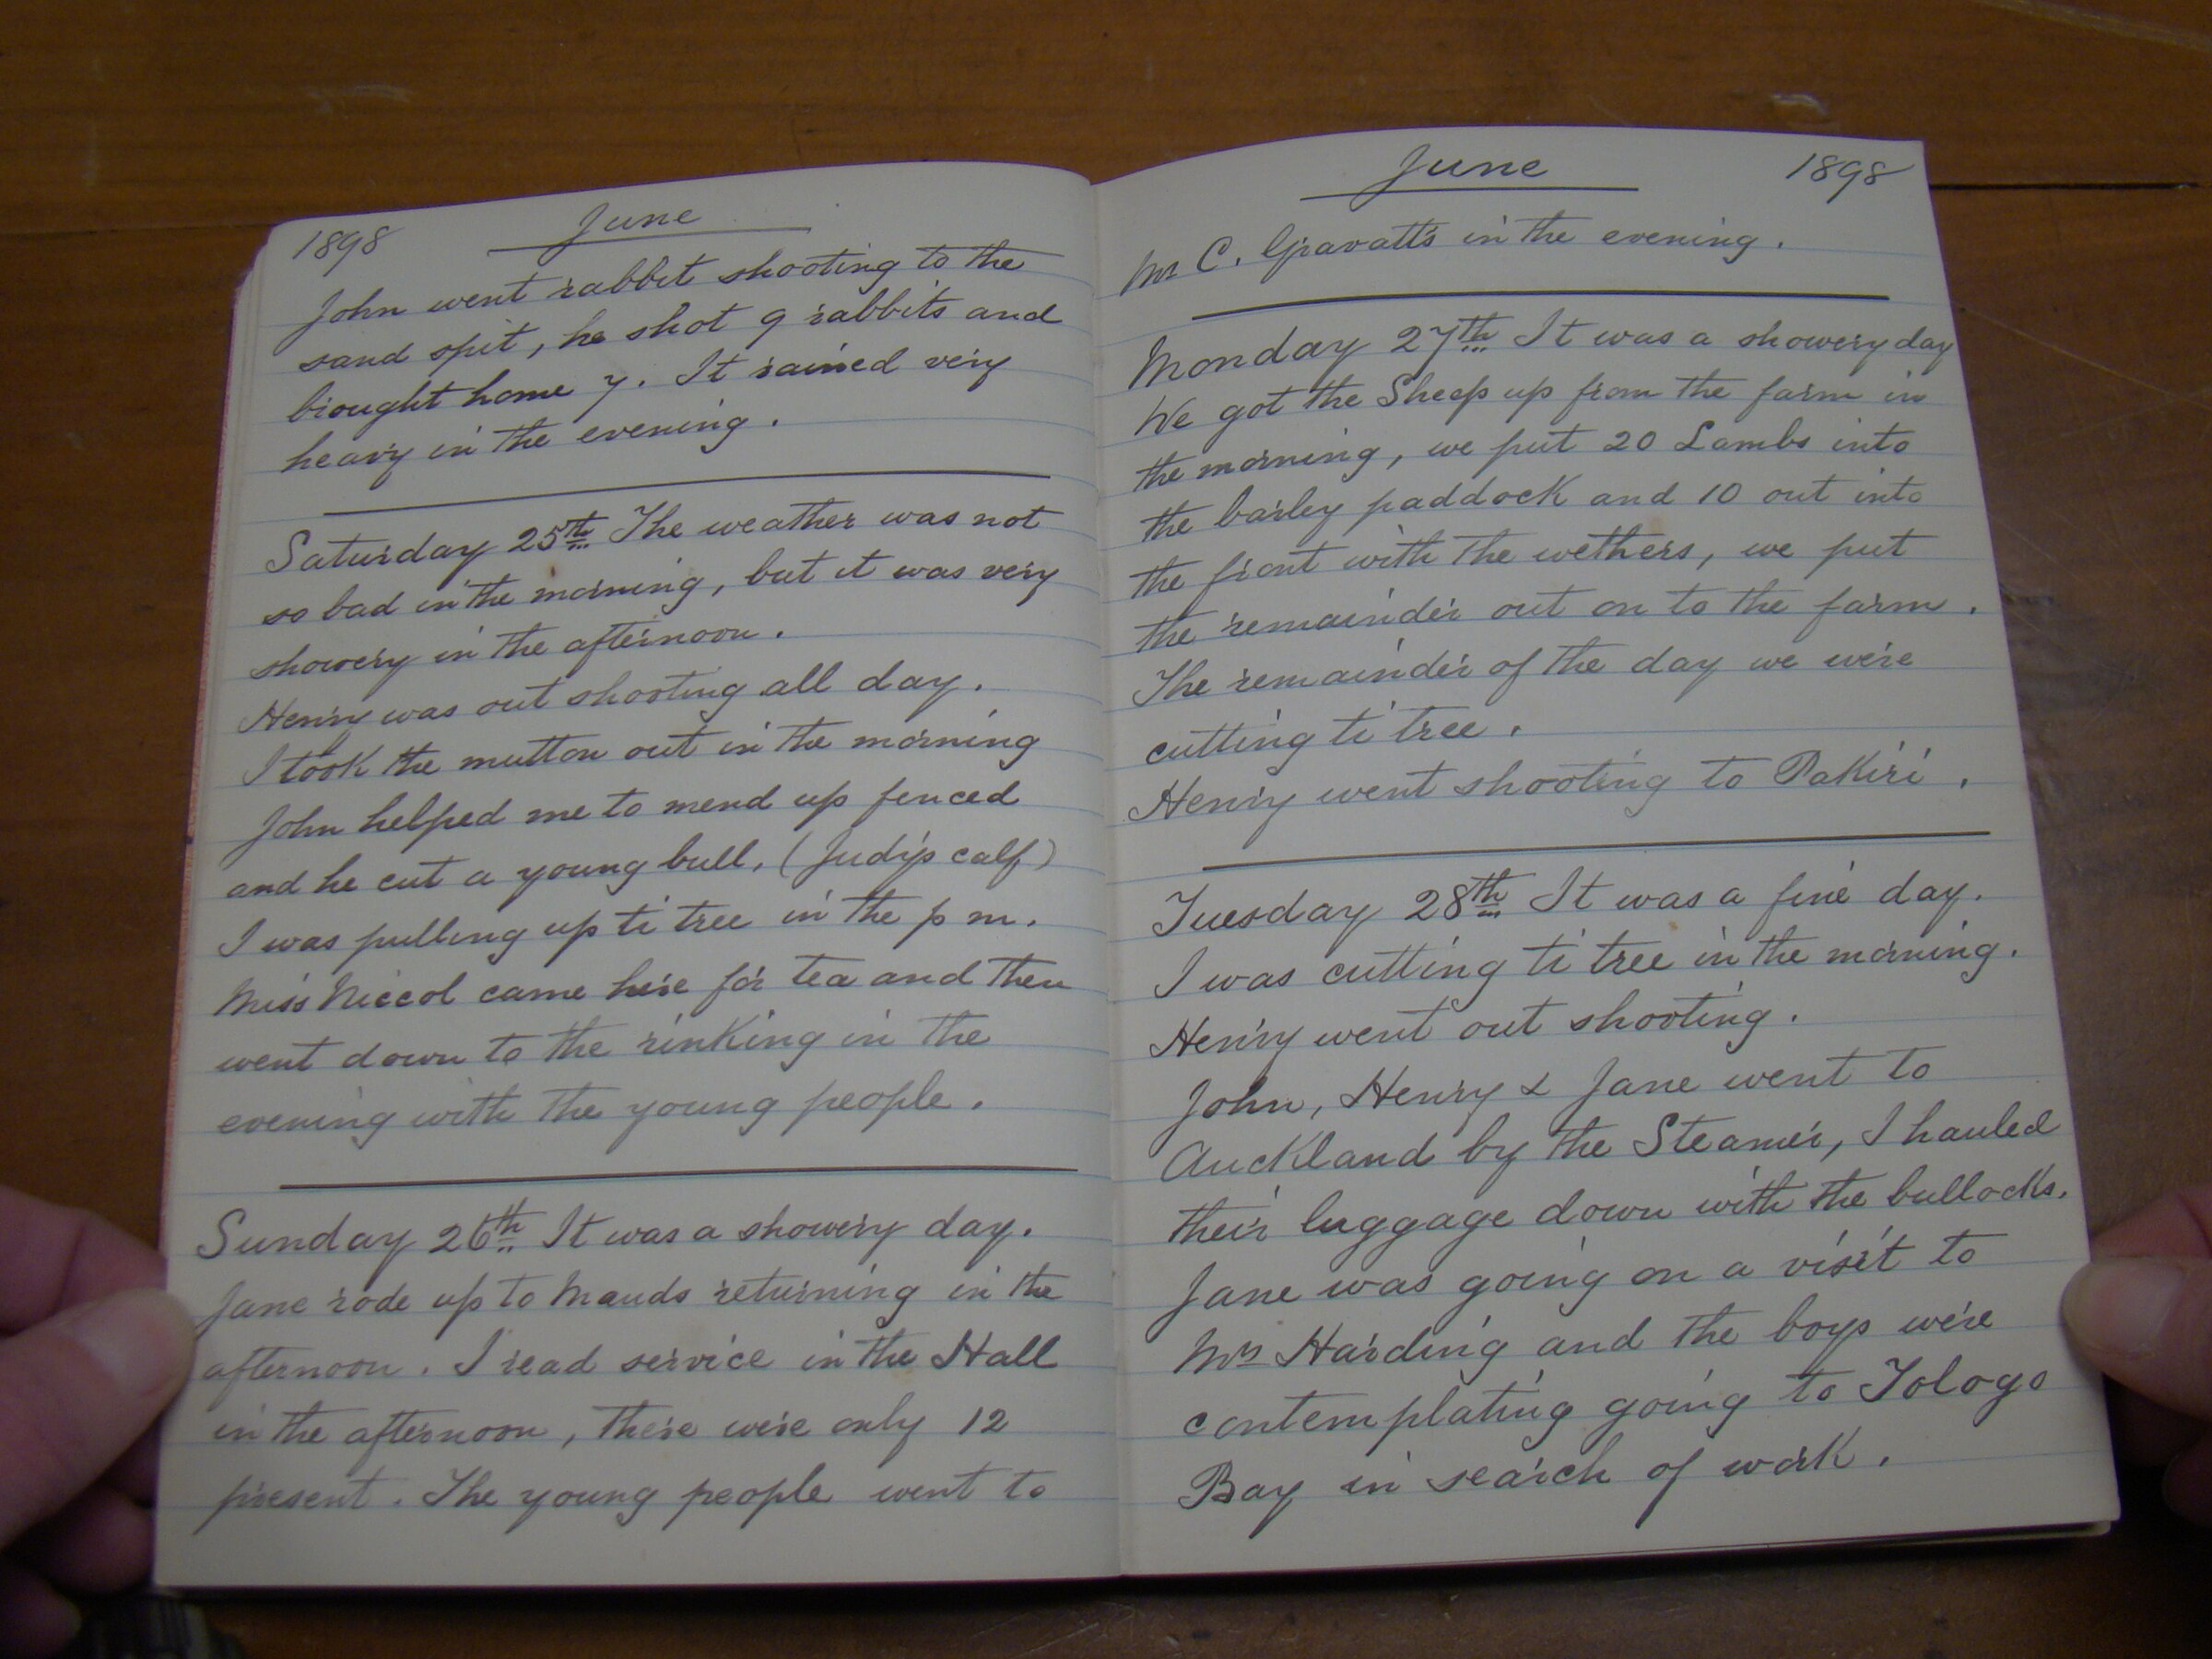 1898 June
John went rabbit shooting to the
sand spit, he shot 9 rabbits and
brought home 7. It rained very
heavy in the evening.
Saturday 25th The weather was not
so bad in the morning, but it was very
showery in the afternoon.
Henry was out shooting all day.
I took the mutton out in the morning
John helped me to mend up fenced
and he cut a young bull, (Judy's calf)
I was pulling up ti tree in the p m.
Miss Niccol came here for tea and then
went down to the rinking in the
evening with the young people.
Sunday 26th It was a showery day.
Jane rode up to Mauds returning in the
afternoon. I read service in the Hall
in the afternoon, there were only 12
present. The young people went to
June 1898
Mr C. Gravatt's in the evening.
Monday 27th It was a showery day
We got the Sheep up from the farm in
the morning, we put 20 Lambs into
the barley paddock and 10 out into
the front with the wethers, we put
the remainder out on to the farm.
The remainder of the day we were
cutting ti tree.
Henry went shooting to Pakiri.
Tuesday 28th It was a fine day.
I was cutting ti tree in the morning.
Henry went out shooting.
John, Henry & Jane went to
Auckland by the Steamer, I hauled
their luggage down with the bullocks.
Jane was going on a visit to
Mrs Harding and the boys were
contemplating going to Tologo
Bay in search of work.